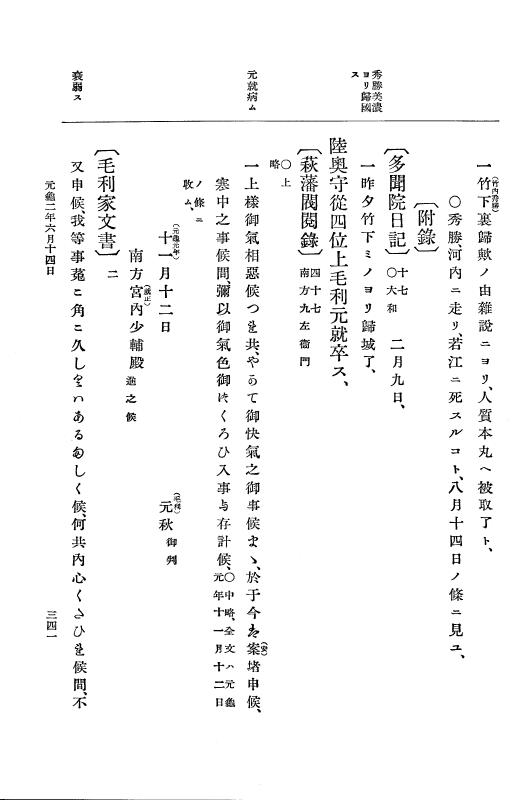 秀勝美濃
ヨリ歸國
ス
元就病ム
衰弱ス
一竹下裏歸歟ノ由雜說ニヨリ、人質本丸ヘ被取了ト、
(竹内秀勝)
○秀勝、河内ニ走リ、若江ニ死スルコト、八月十四日ノ條ニ見ユ、
〔附錄〕
〔多聞院日記〕十七○大和 二月九日、
一昨夕竹下ミノヨリ歸城了、
陸奧守從四位上毛利元就卒ス、
〔萩藩閥閱錄〕四十七南方九左衞門
○上略
一上樣御氣相惡候つ𛀁共、やかて御快氣之御事候まゝ、於于今者案堵申候、
(安)
寒中之事候間、彌以御氣色御つくろひ入事与存計候、○中略、全文ハ元龜元年十一月十二日
ノ條ニ收ム、
(元龜元年)
十一月十二日
元秋御判
(毛利)
南方宮内少輔殿進之候
(就正)
〔毛利家文書〕二
又申候、我等事菟ニ角ニ久しくハあるましく候、何共内心くたひれ候間、不
元龜二年六月十四日
三四一